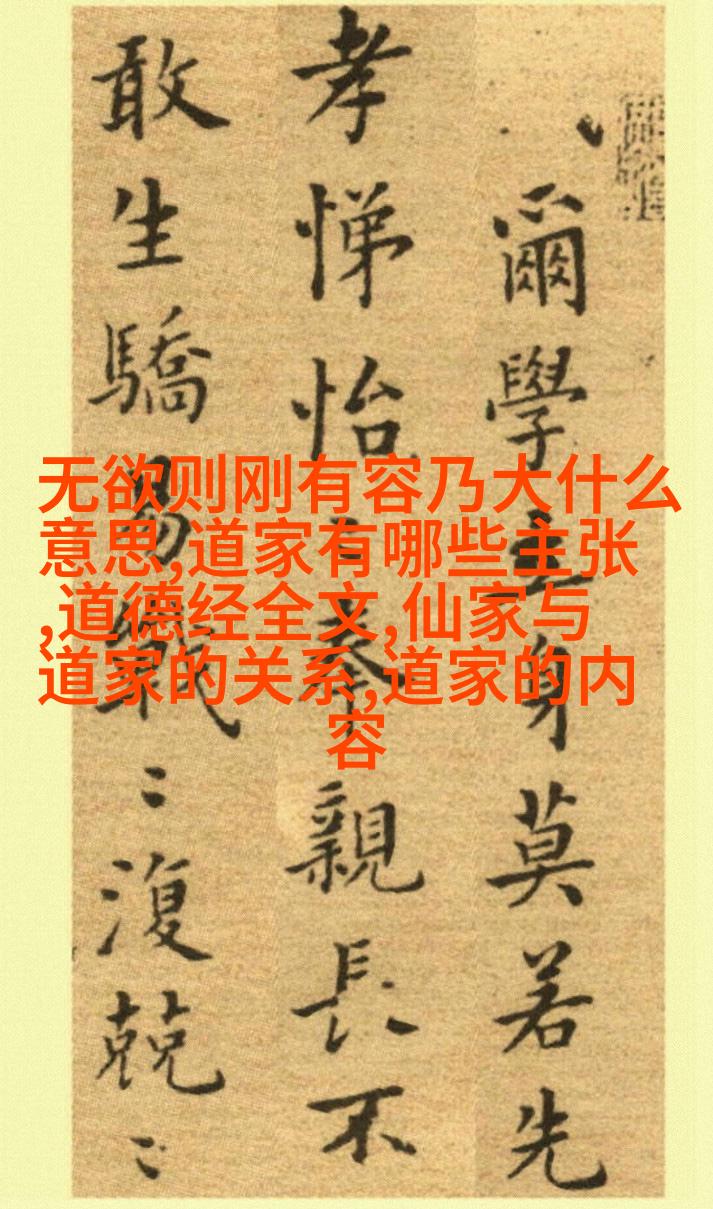 无欲则刚有容乃大什么
意思,道家有哪些主张
,道德经全文,仙家与
道家的关系,道家的内
容
爾學立身莫若先
孝悌怡〻奉親長不
敢生驕易戰〻復兢〻